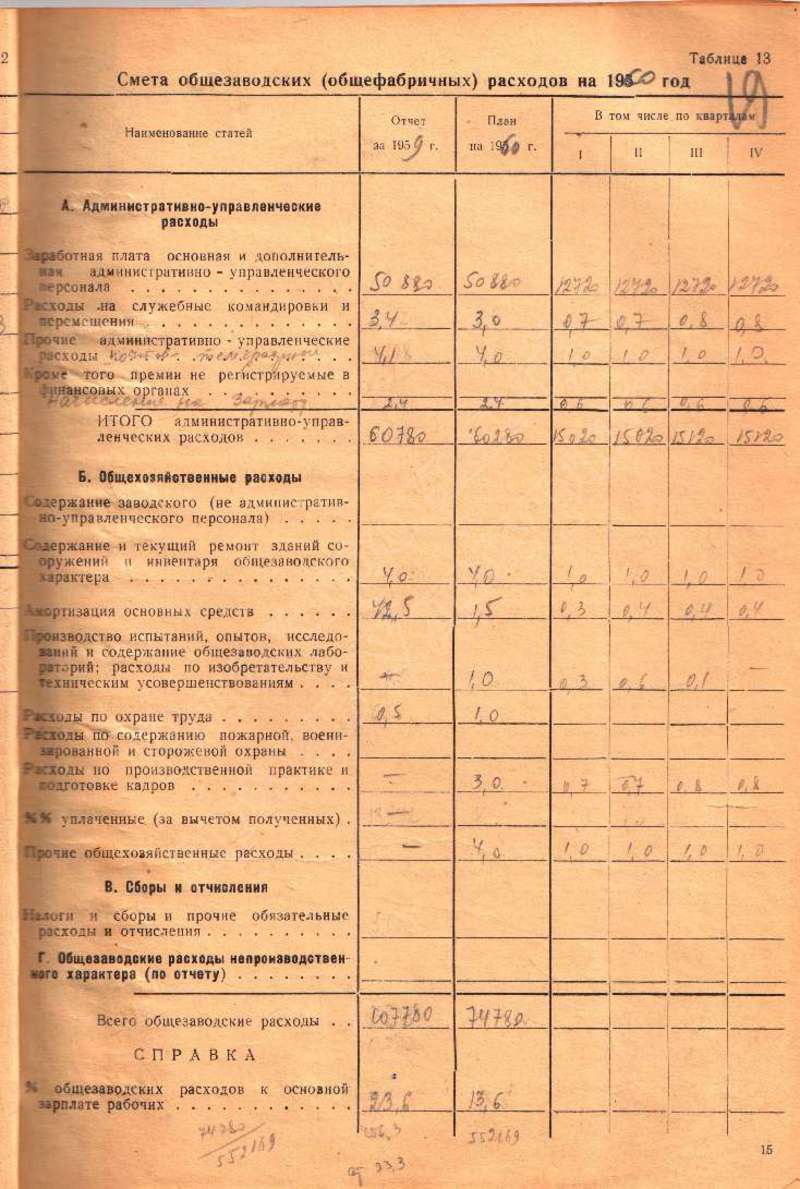 2
Таблица 13
Смета общезаводских (общефабричных) расходов на 1960 год
19
Наименование статей
Отчет за 1959 г.
План на 1960 г.
В том числе по кварталам
I II III IV
А. Административно-управленческие
расходы
Заработная плата основная и дополнитель-
ная административно-управленческого
персонала . . . 50 880 50 880 12720 12720 12720 12720
Расходы на служебные командировки и
перемещения . . . 3,4 3,0 0,7 0,7 0,8 0,8
Прочие административно-управленческие
расходы . . . 4,1 4,0 1,0 1,0 1,0 1,0
Кроме того премии не регистрируемые в
финансовых органах . . .
начисление на зарплату 2,4 2,4 0,6 0,6 0,6 0,6
ИТОГО административно-управ-
ленческих расходов . . . 60780 60280 15020 15020 15120 15120
Б. Общехозяйственные расходы
Содержание заводского (не административ-
но-управленческого персонала) . . .
Содержание и текущий ремонт зданий со-
оружений и инвентаря общезаводского
характера . . . 4,0 4,0 1,0 1,0 1,0 1,0
Амортизация основных средств . . . 42,5 1,5 0,3 0,4 0,4 0,4
Производство испытаний, опытов, исследо-
ваний и содержание общезаводских лабо-
раторий; расходы по изобретательству и
техническим усовершенствованиям . . . — 1,0 0,3 0,6 0,1 —
Расходы по охране труда . . . 0,5 1,0
Расходы по содержанию пожарной, воени-
зированной и сторожевой охраны . . .
Расходы по производственной практике и
подготовке кадров . . . — 3,0 0,7 0,7 0,8 0,8
%% уплаченные (за вычетом полученных) . —
Прочие общехозяйственные расходы . . . — 4,0 1,0 1,0 1,0 1,0
В. Сборы и отчисления
Налоги и сборы и прочие обязательные
расходы и отчисления . . .
Г. Общезаводские расходы непроизводствен-
ного характера (по отчету) . . .
Всего общезаводские расходы . . 107780 74780
СПРАВКА
% общезаводских расходов к основной
зарплате рабочих . . . 23,6 13,6
74780
552169
552169
33,3
15